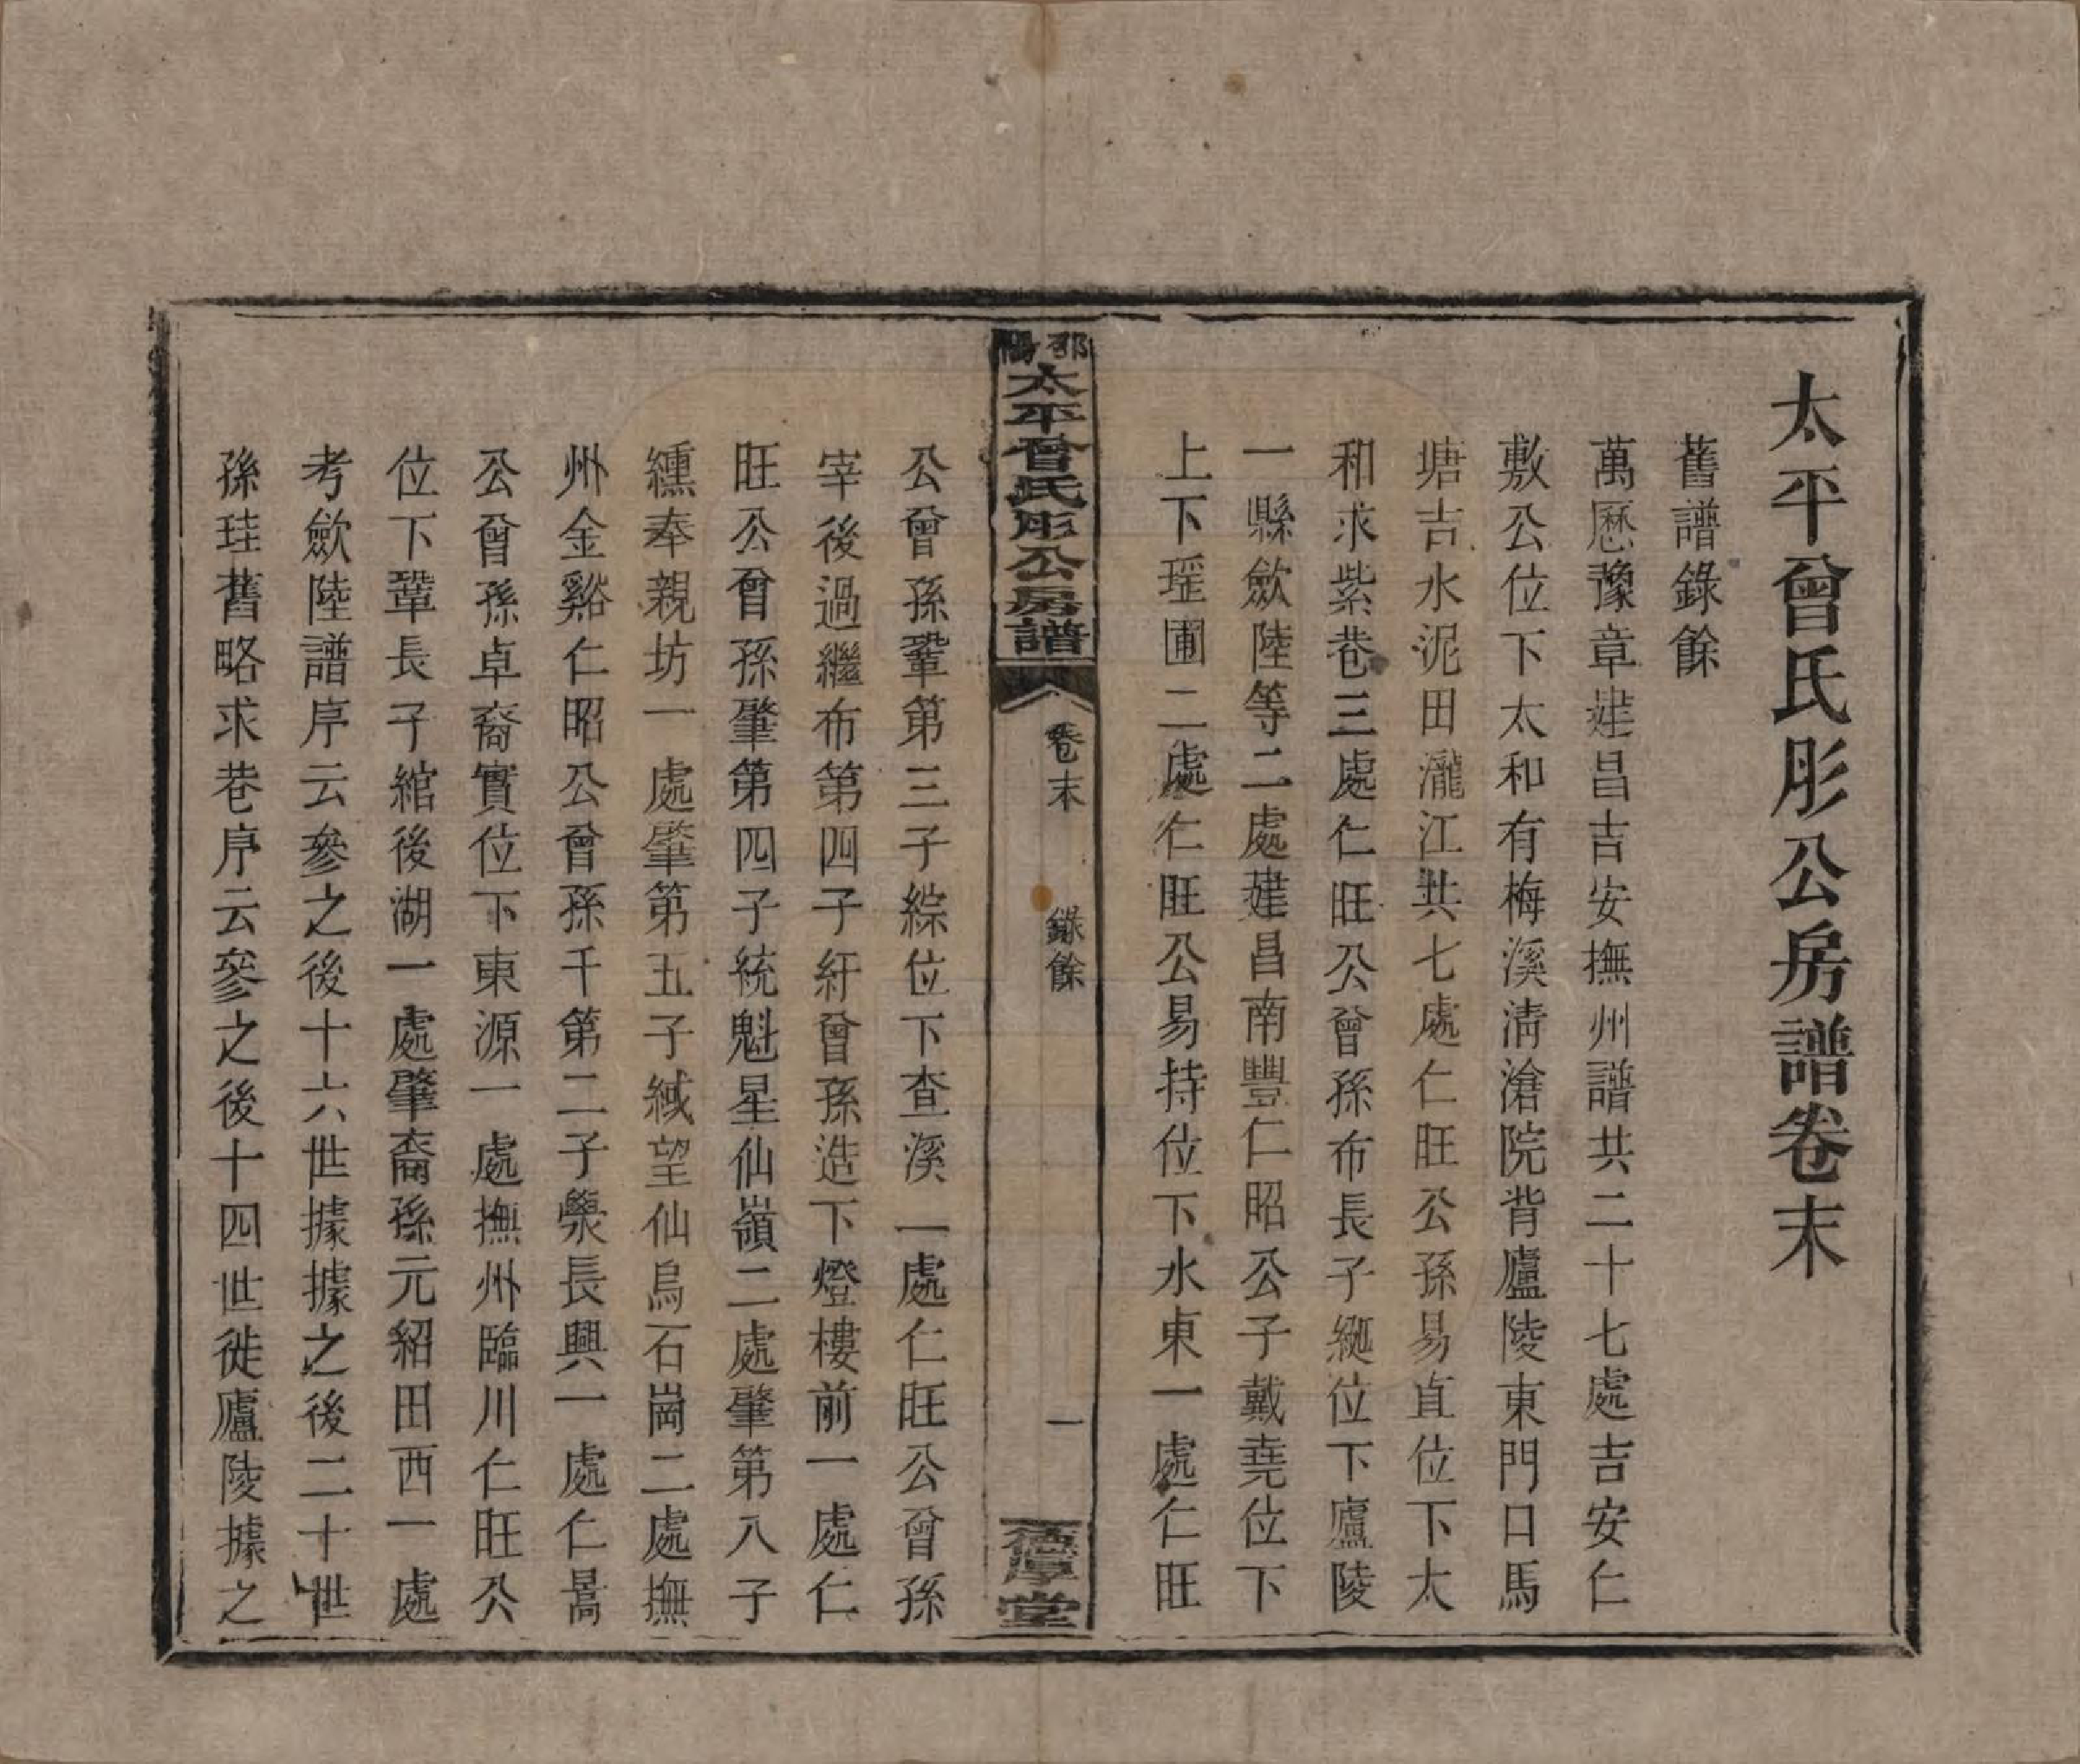 太平曾氏彤公房譜卷末
舊譜錄餘
萬厯豫章建昌吉安撫州譜共二十七處吉安仁
敷公位下太和有梅溪淸滄院背廬陵東門口馬
塘吉水泥田瀧江共七處仁旺公孫易直位下太
和求紫巷三處仁旺公曾孫布長子綖位下廬陵
一縣歛陸等二處建昌南豐仁昭公子戴堯位下
上下瑶圃二處仁旺公易持位下水東一處仁旺
邵陽太平曾氏彤公房譜
卷末
錄餘
一
德厚堂
公曾孫鞏第三子綜位下查溪一處仁旺公曾孫
宰後過繼布第四子紆曾孫造下燈樓前一處仁
旺公曾孫肇第四子統魁星仙嶺二處肇第八子
纁奉親坊一處肇第五子緎望仙烏石崗二處撫
州金谿仁昭公曾孫千第二子㵧長興一處仁暠
公曾孫卓裔實位下東源一處撫州臨川仁旺公
位下鞏長子綰後湖一處肇裔孫元紹田西一處
考歛陸譜序云參之後十六世據據之後二十世
孫珪舊略求巷序云參之後十四世徙廬陵據之